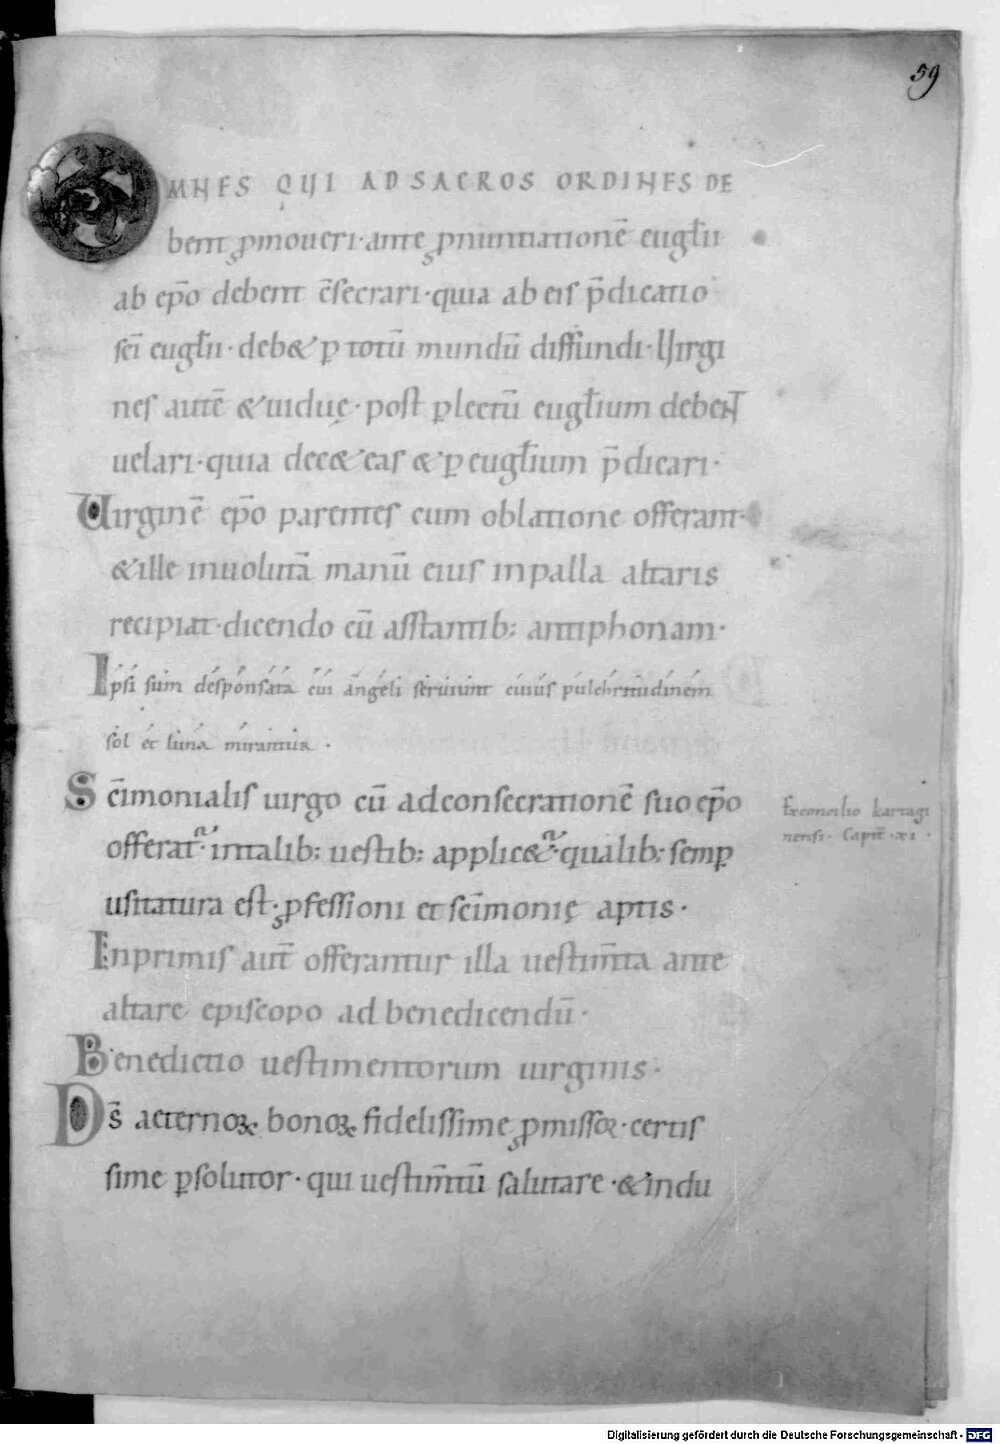 59
OMNES QUI AD SACROS ORDINES DE
bent ꝓmoueri · ante ꝓnuntiationē eugl̄ii
ab ep̄o debent c̄secrari · quia ab eis p̄dicatio
sc̄i eugl̄ii · deb& ꝑ totū mundū diffundi · Uirgi
nes autē & uiduę · post ꝑlectū eugl̄ium debent
uelari · quia dec& eas & ꝑ eugl̄ium p̄dicari ·
Uirginē ep̄o parentes cum oblatione offerant ·
& ille inuolutā manū eius in palla altaris
recipiat · dicendo cū asstantib; antiphonam ·
Ipsi sum desponsata cui angeli seruiunt cuius pulchritudinem
sol et luna mirantur ·
Sc̄imonialis uirgo cū ad consecrationē suo ep̄o
offerat᷑ · in talib; uestib; applic&᷑ · qualib; semꝑ
usitatura est · ꝓfessioni et sc̄imonię aptis ·
Ex concilio kartagi
nensi · Capit̄ · xi ·
Inprimis aut̄ offerantur illa uestim̄ta ante
altare episcopo ad benedicendū ·
Benedictio uestimentorum uirginis ·
Ds̄ aeternoꝝ bonoꝝ fidelissime ꝓmissor · certis
sime ꝑsolutor · qui uestim̄tū salutare · & indu
Digitalisierung gefördert durch die Deutsche Forschungsgemeinschaft - DFG